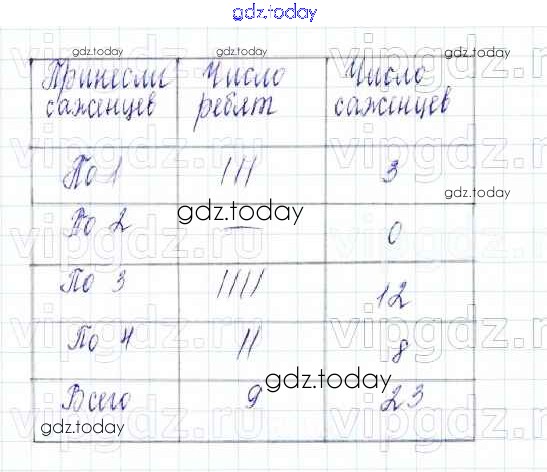 gdz.today
Принесли саженцев Число ребят Число саженцев
По 1 III 3
По 2 — 0
По 3 IIII 12
По 4 II 8
Всего 9 23
gdz.today
gdz.today
gdz.today
gdz.today
gdz.today
gdz.today
gdz.today
vipgdz.ru
vipgdz.ru
vipgdz.ru
vipgdz.ru
vipgdz.ru